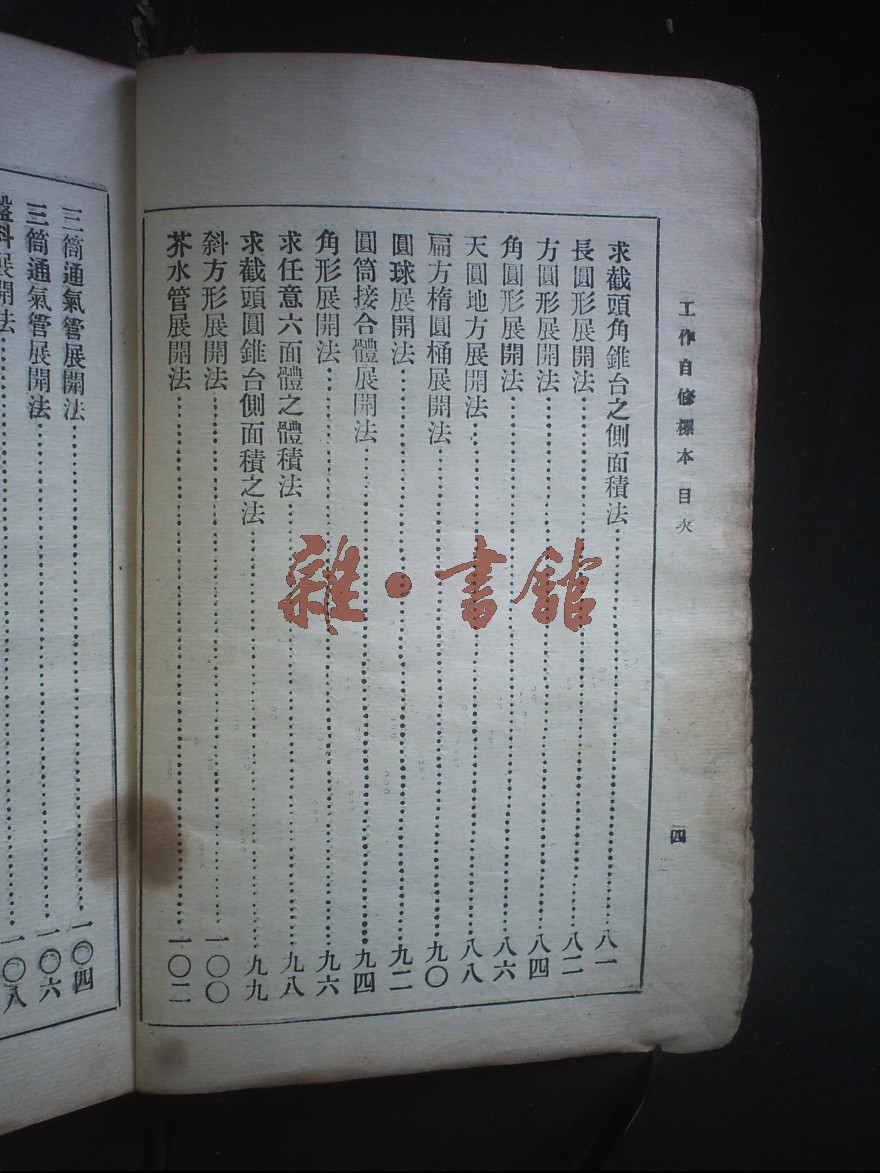 工作自修標本 目次
四
求截頭角錐台之側面積法 八一
長圓形展開法 八二
方圓形展開法 八四
角圓形展開法 八六
天圓地方展開法 八八
扁方楕圓桶展開法 九〇
圓球展開法 九二
圓筒接合體展開法 九四
角形展開法 九六
求任意六面體之體積法 九八
求截頭圓錐台側面積之法 九九
斜方形展開法 一〇〇
芥水管展開法 一〇二
三筒通氣管展開法 一〇四
三筒通氣管展開法 一〇六
科展開法 一〇八
雜·書館